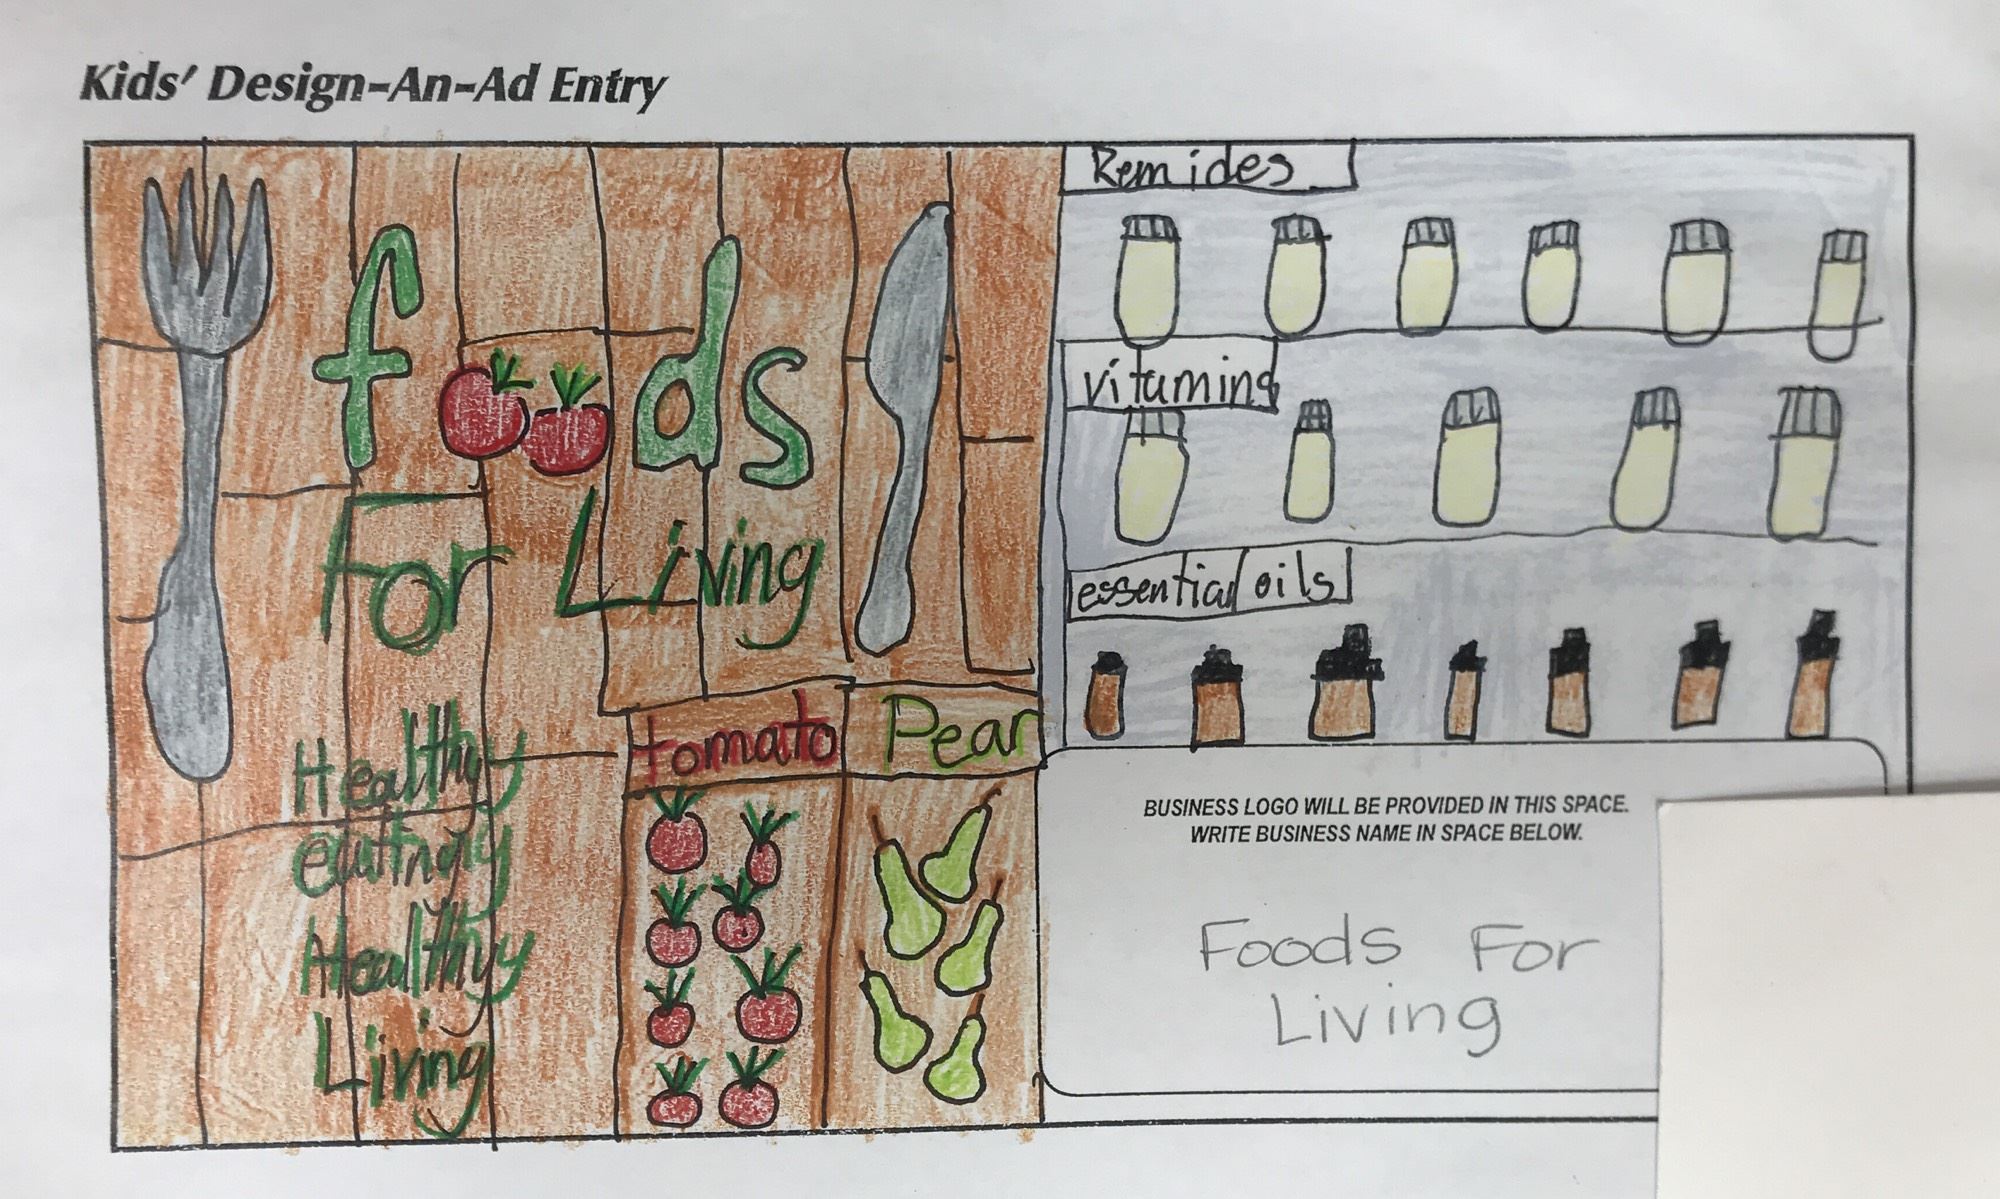 Kids' Design-An-Ad Entry
foods
For Living
Healthy
eating
Healthy
Living
tomato
Pear
Remides
vitamins
essential oils
BUSINESS LOGO WILL BE PROVIDED IN THIS SPACE.
WRITE BUSINESS NAME IN SPACE BELOW.
Foods For
Living